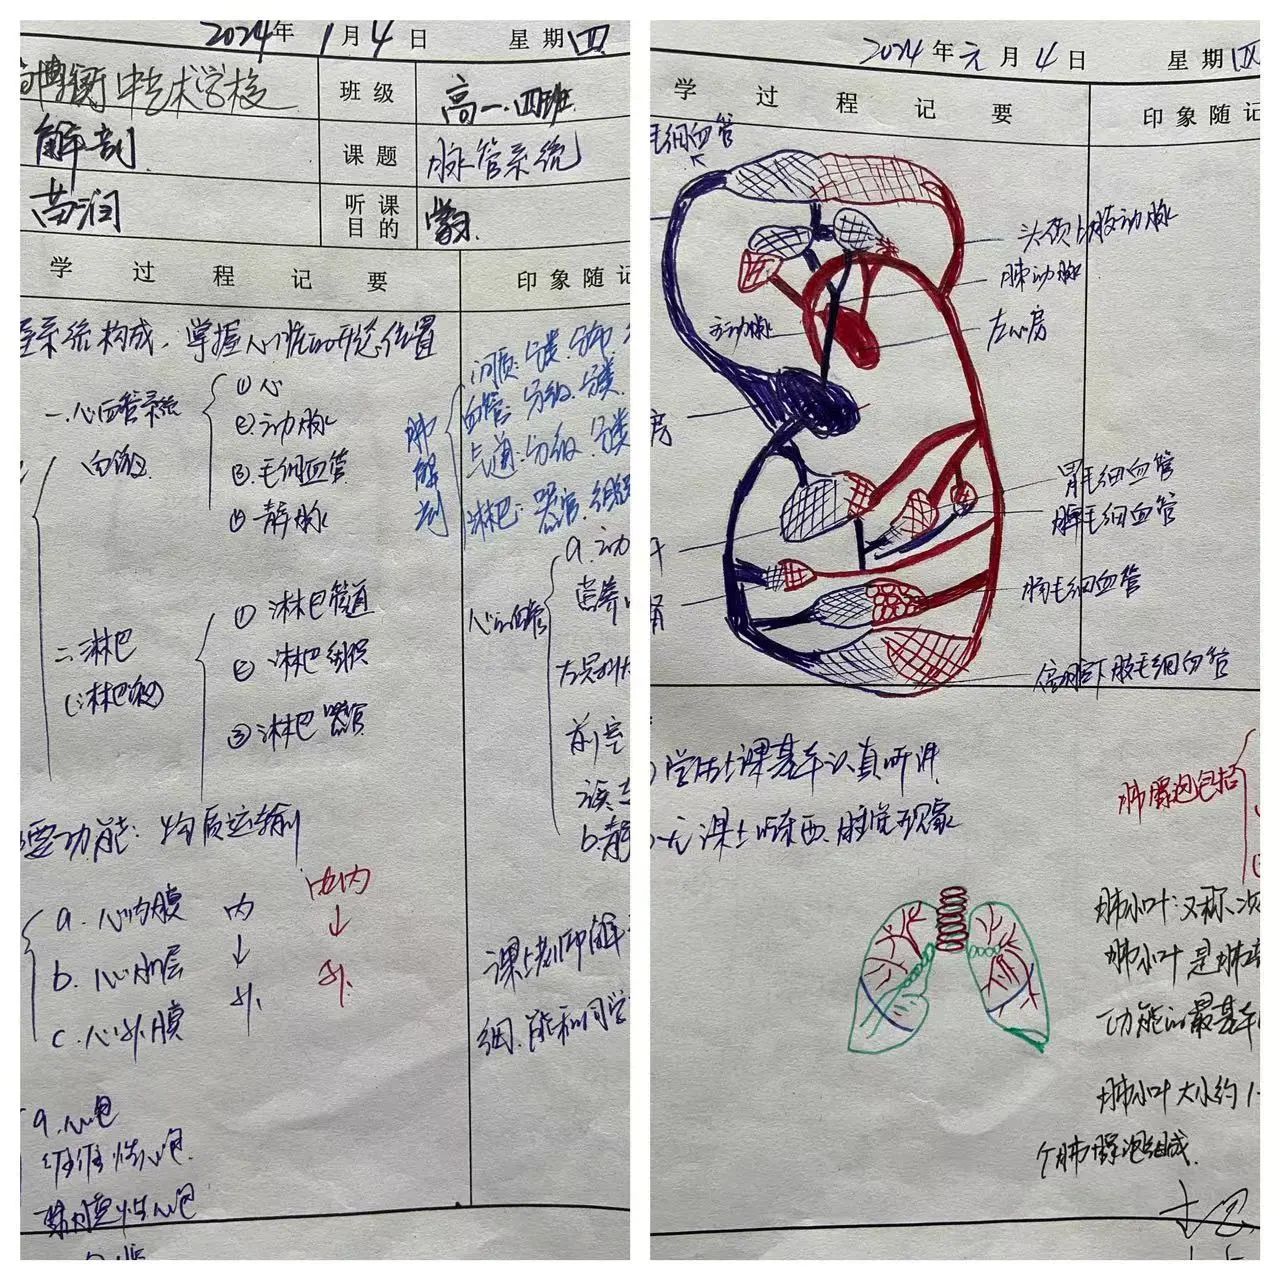 2024年1月4日 星期四
博衡中艺术学校 班级 高一.四班
解剖 课题 脉管系统
苗润 听课目的 学习.
学过程记要 印象随记
系统构成.掌握心脏的形态位置
一.心血管系统
①心
②动脉
③毛细血管
④静脉
二.淋巴
①淋巴管道
②淋巴组织
③淋巴器官
功能:物质运输
a.心内膜
b.心肌层
c.心外膜
内
↓
外
由内
↓
外
a.心包
纤维性心包
浆膜性心包
肺解剖
间质:分类.分布.
血管:分级.分类.
气道:分级.分类
淋巴:器官.组织
心血管
a.动
b.静
课上老师
细.能和同学
2024年元月4日 星期四
学过程记要 印象随记
毛细血管
头颈上肢动脉
肺动脉
主动脉
左心房
房
胃毛细血管
脾毛细血管
毛细血管
下肢毛细血管
学生上课基本认真听讲.
无课上吃东西.睡觉现象
肺腺泡包括
肺小叶:又称.次
肺小叶是肺
功能的最基本
肺小叶大小约1-
个肺腺泡组成.